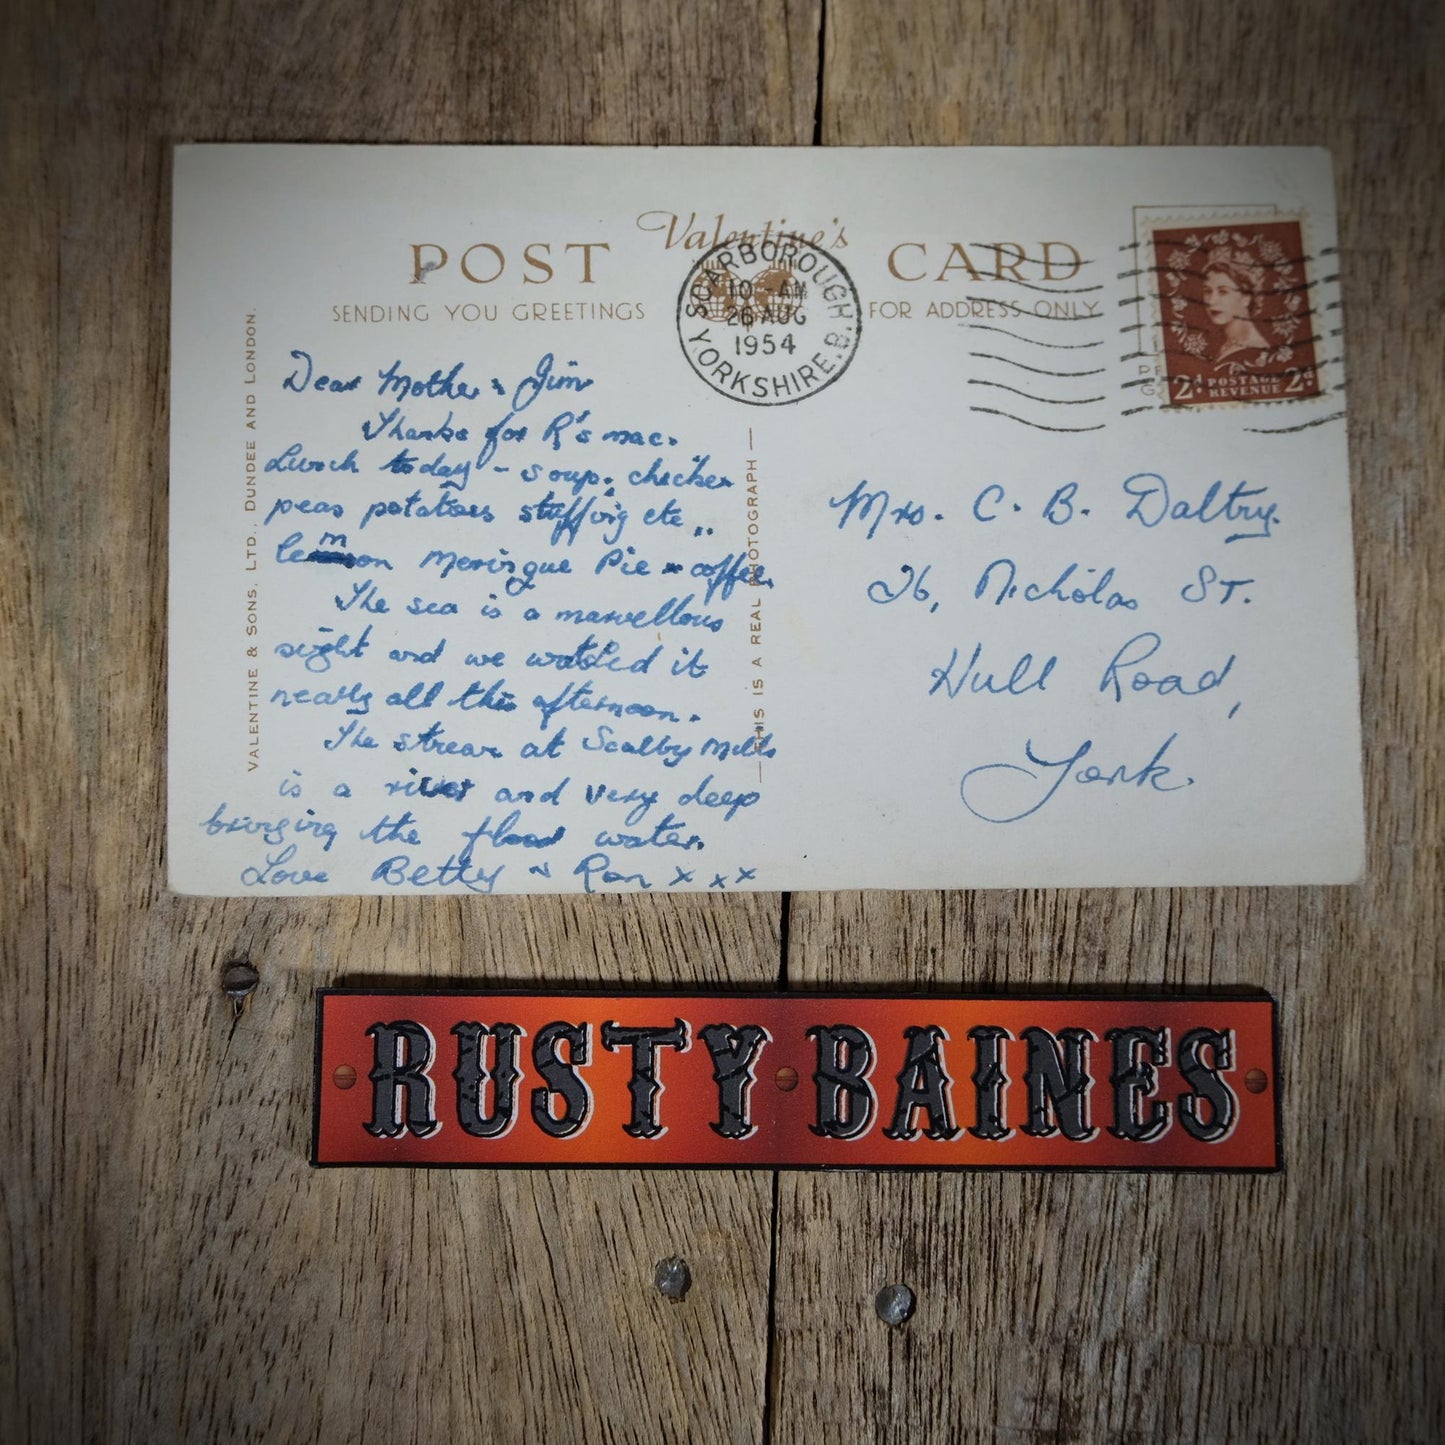 Valentine's
POST CARD
SENDING YOU GREETINGS
FOR ADDRESS ONLY
SCARBOROUGH
10 - AM
26 AUG
1954
YORKSHIRE.B.
2D POSTAGE REVENUE 2D
VALENTINE & SONS, LTD., DUNDEE AND LONDON.
THIS IS A REAL PHOTOGRAPH
Dear Mother & Jim
Thanks for R's mac.
Lunch today - soup, chicken
peas potatoes stuffing etc..
lemon Meringue Pie & coffee.
The sea is a marvellous
sight and we watched it
nearly all this afternoon.
The stream at Scalby Mills
is a river and very deep
bringing the flood water.
Love Betty & Ron x x x
Mrs. C. B. Daltry.
26, Nicholas St.
Hull Road,
York.
RUSTY BAINES